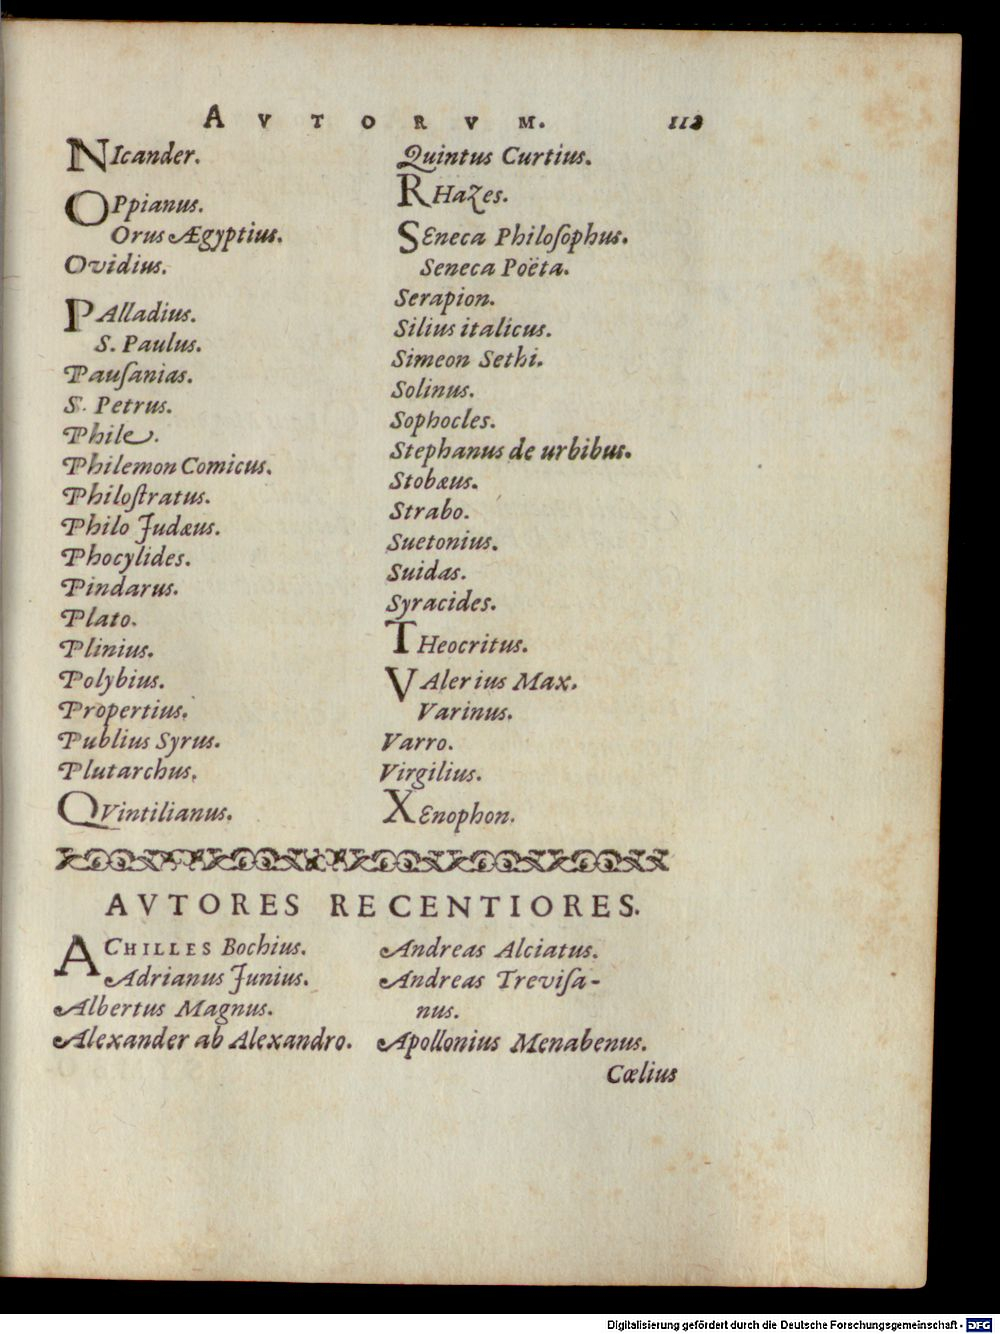 AVTORVM. 112
NIcander.
OPpianus.
Orus Ægyptius.
Ovidius.
PAlladius.
S. Paulus.
Pauſanias.
S. Petrus.
Phile.
Philemon Comicus.
Philoſtratus.
Philo Judæus.
Phocylides.
Pindarus.
Plato.
Plinius.
Polybius.
Propertius.
Publius Syrus.
Plutarchus.
QVintilianus.
Quintus Curtius.
RHazes.
SEneca Philoſophus.
Seneca Poëta.
Serapion.
Silius italicus.
Simeon Sethi.
Solinus.
Sophocles.
Stephanus de urbibus.
Stobæus.
Strabo.
Suetonius.
Suidas.
Syracides.
THeocritus.
VAlerius Max.
Varinus.
Varro.
Virgilius.
XEnophon.
AVTORES RECENTIORES.
ACHILLES Bochius.
Adrianus Junius.
Albertus Magnus.
Alexander ab Alexandro.
Andreas Alciatus.
Andreas Treviſa-
nus.
Apollonius Menabenus.
Cœlius
Digitalisierung gefördert durch die Deutsche Forschungsgemeinschaft - DFG